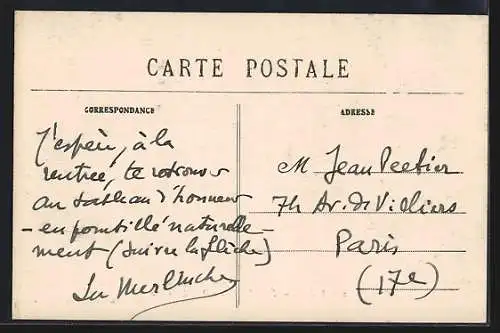 CARTE POSTALE
CORRESPONDANCE
ADRESSE
J'espère, à la
rentrée, te retrouver
au tableau d'honneur
- en pointillé naturelle-
ment (suivre la flèche)
M Jean
74 Av. de Villiers
Paris
(17e)